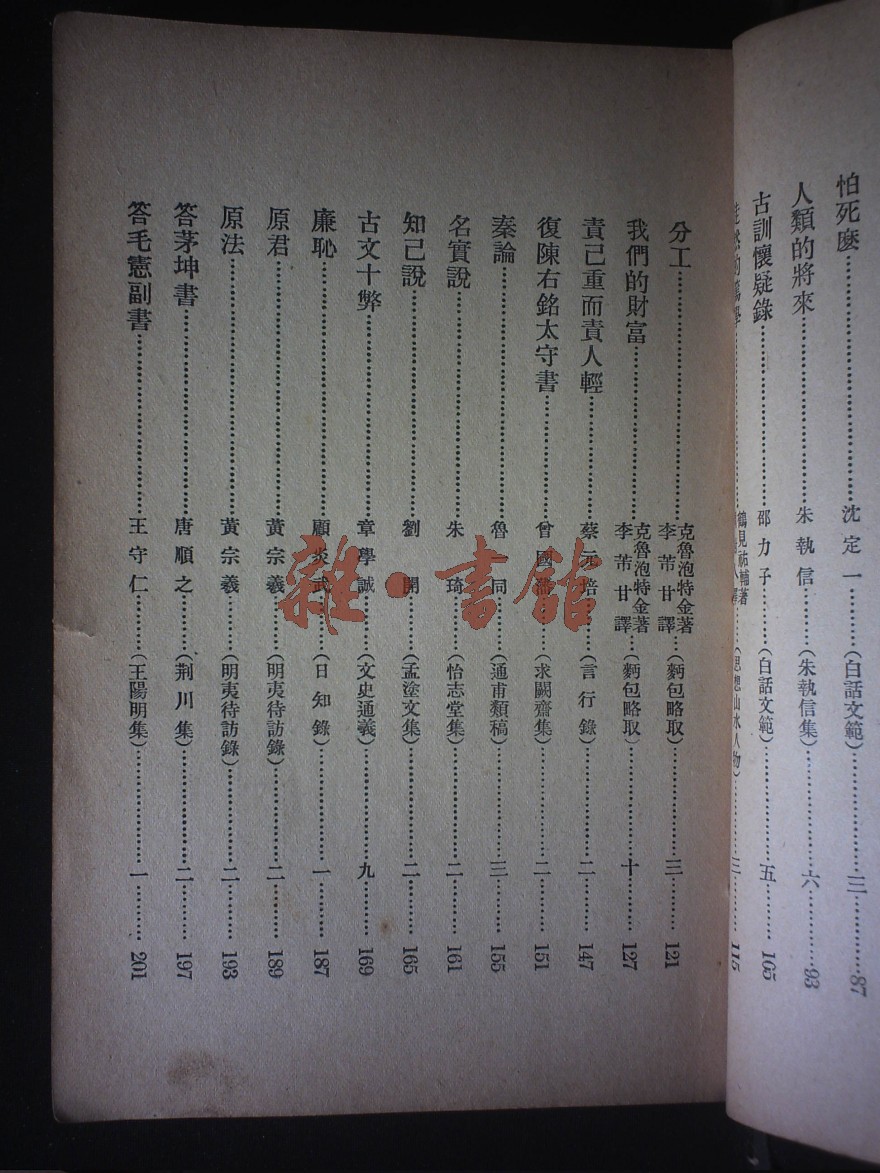 怕死麽……沈定一……(白話文範)……三……87
人類的將來……朱執信……(朱執信集)……六……93
古訓懷疑錄……邵力子……(白話文範)……五……165
鶴見祐輔著……(思想山水人物)……三……115
分工……克魯泡特金著 李芾甘譯……(麪包略取)……三……121
我們的財富……克魯泡特金著 李芾甘譯……(麪包略取)……十……127
責己重而責人輕……蔡元培……(言行錄)……二……147
復陳右銘太守書……曾國藩……(求闕齋集)……二……151
秦論……魯同……(通甫類稿)……三……155
名實說……朱琦……(怡志堂集)……二……161
知己說……劉開……(孟塗文集)……二……165
古文十弊……章學誠……(文史通義)……九……169
廉恥……顧炎武……(日知錄)……一……187
原君……黃宗羲……(明夷待訪錄)……二……189
原法……黃宗羲……(明夷待訪錄)……二……193
答茅坤書……唐順之……(荆川集)……二……197
答毛憲副書……王守仁……(王陽明集)……一……201
雜·書館